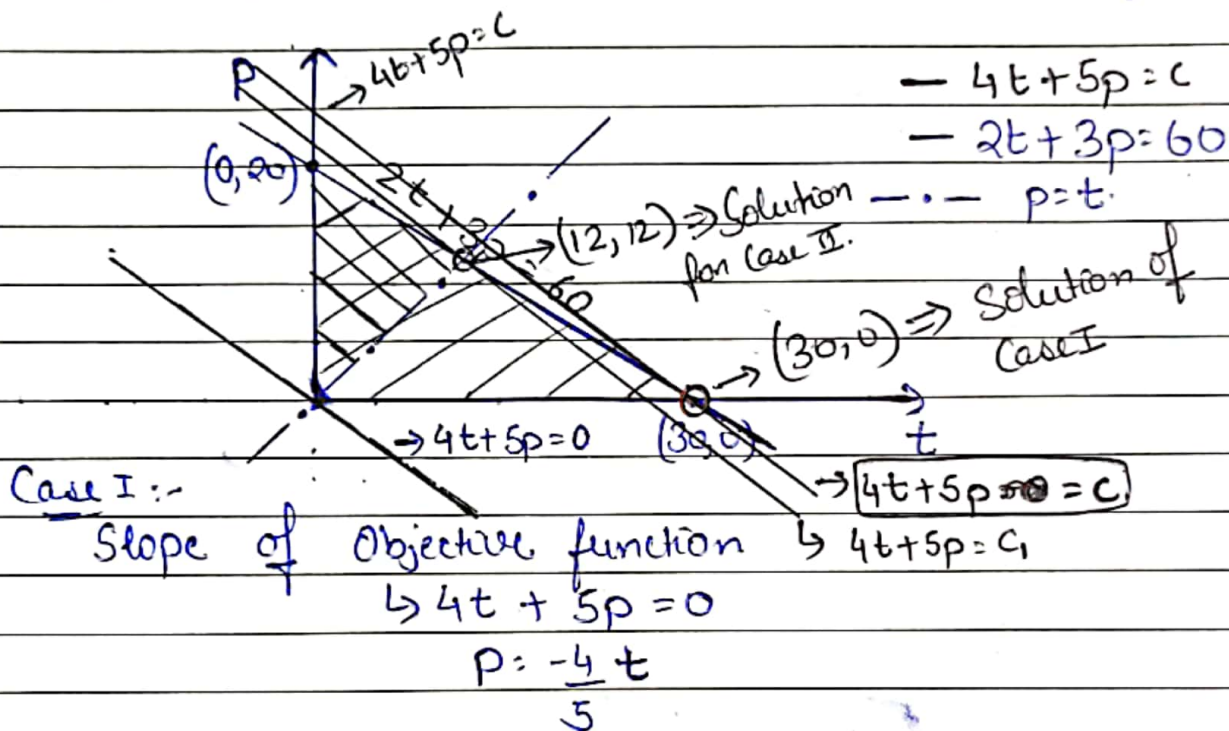 P
→ 4t+5p=c
— 4t+5p=c
— 2t+3p=60
—·— p=t.
(0,20)
2t+3p=60
→(12,12)⇒Solution
for Case II.
→ (30,0) ⇒ Solution of
Case I
→4t+5p=0
(30,0)
t
→ 4t+5p = c
↳ 4t+5p=C₁
Case I :-
Slope of Objective function
↳ 4t + 5p = 0
P = -4/5 t